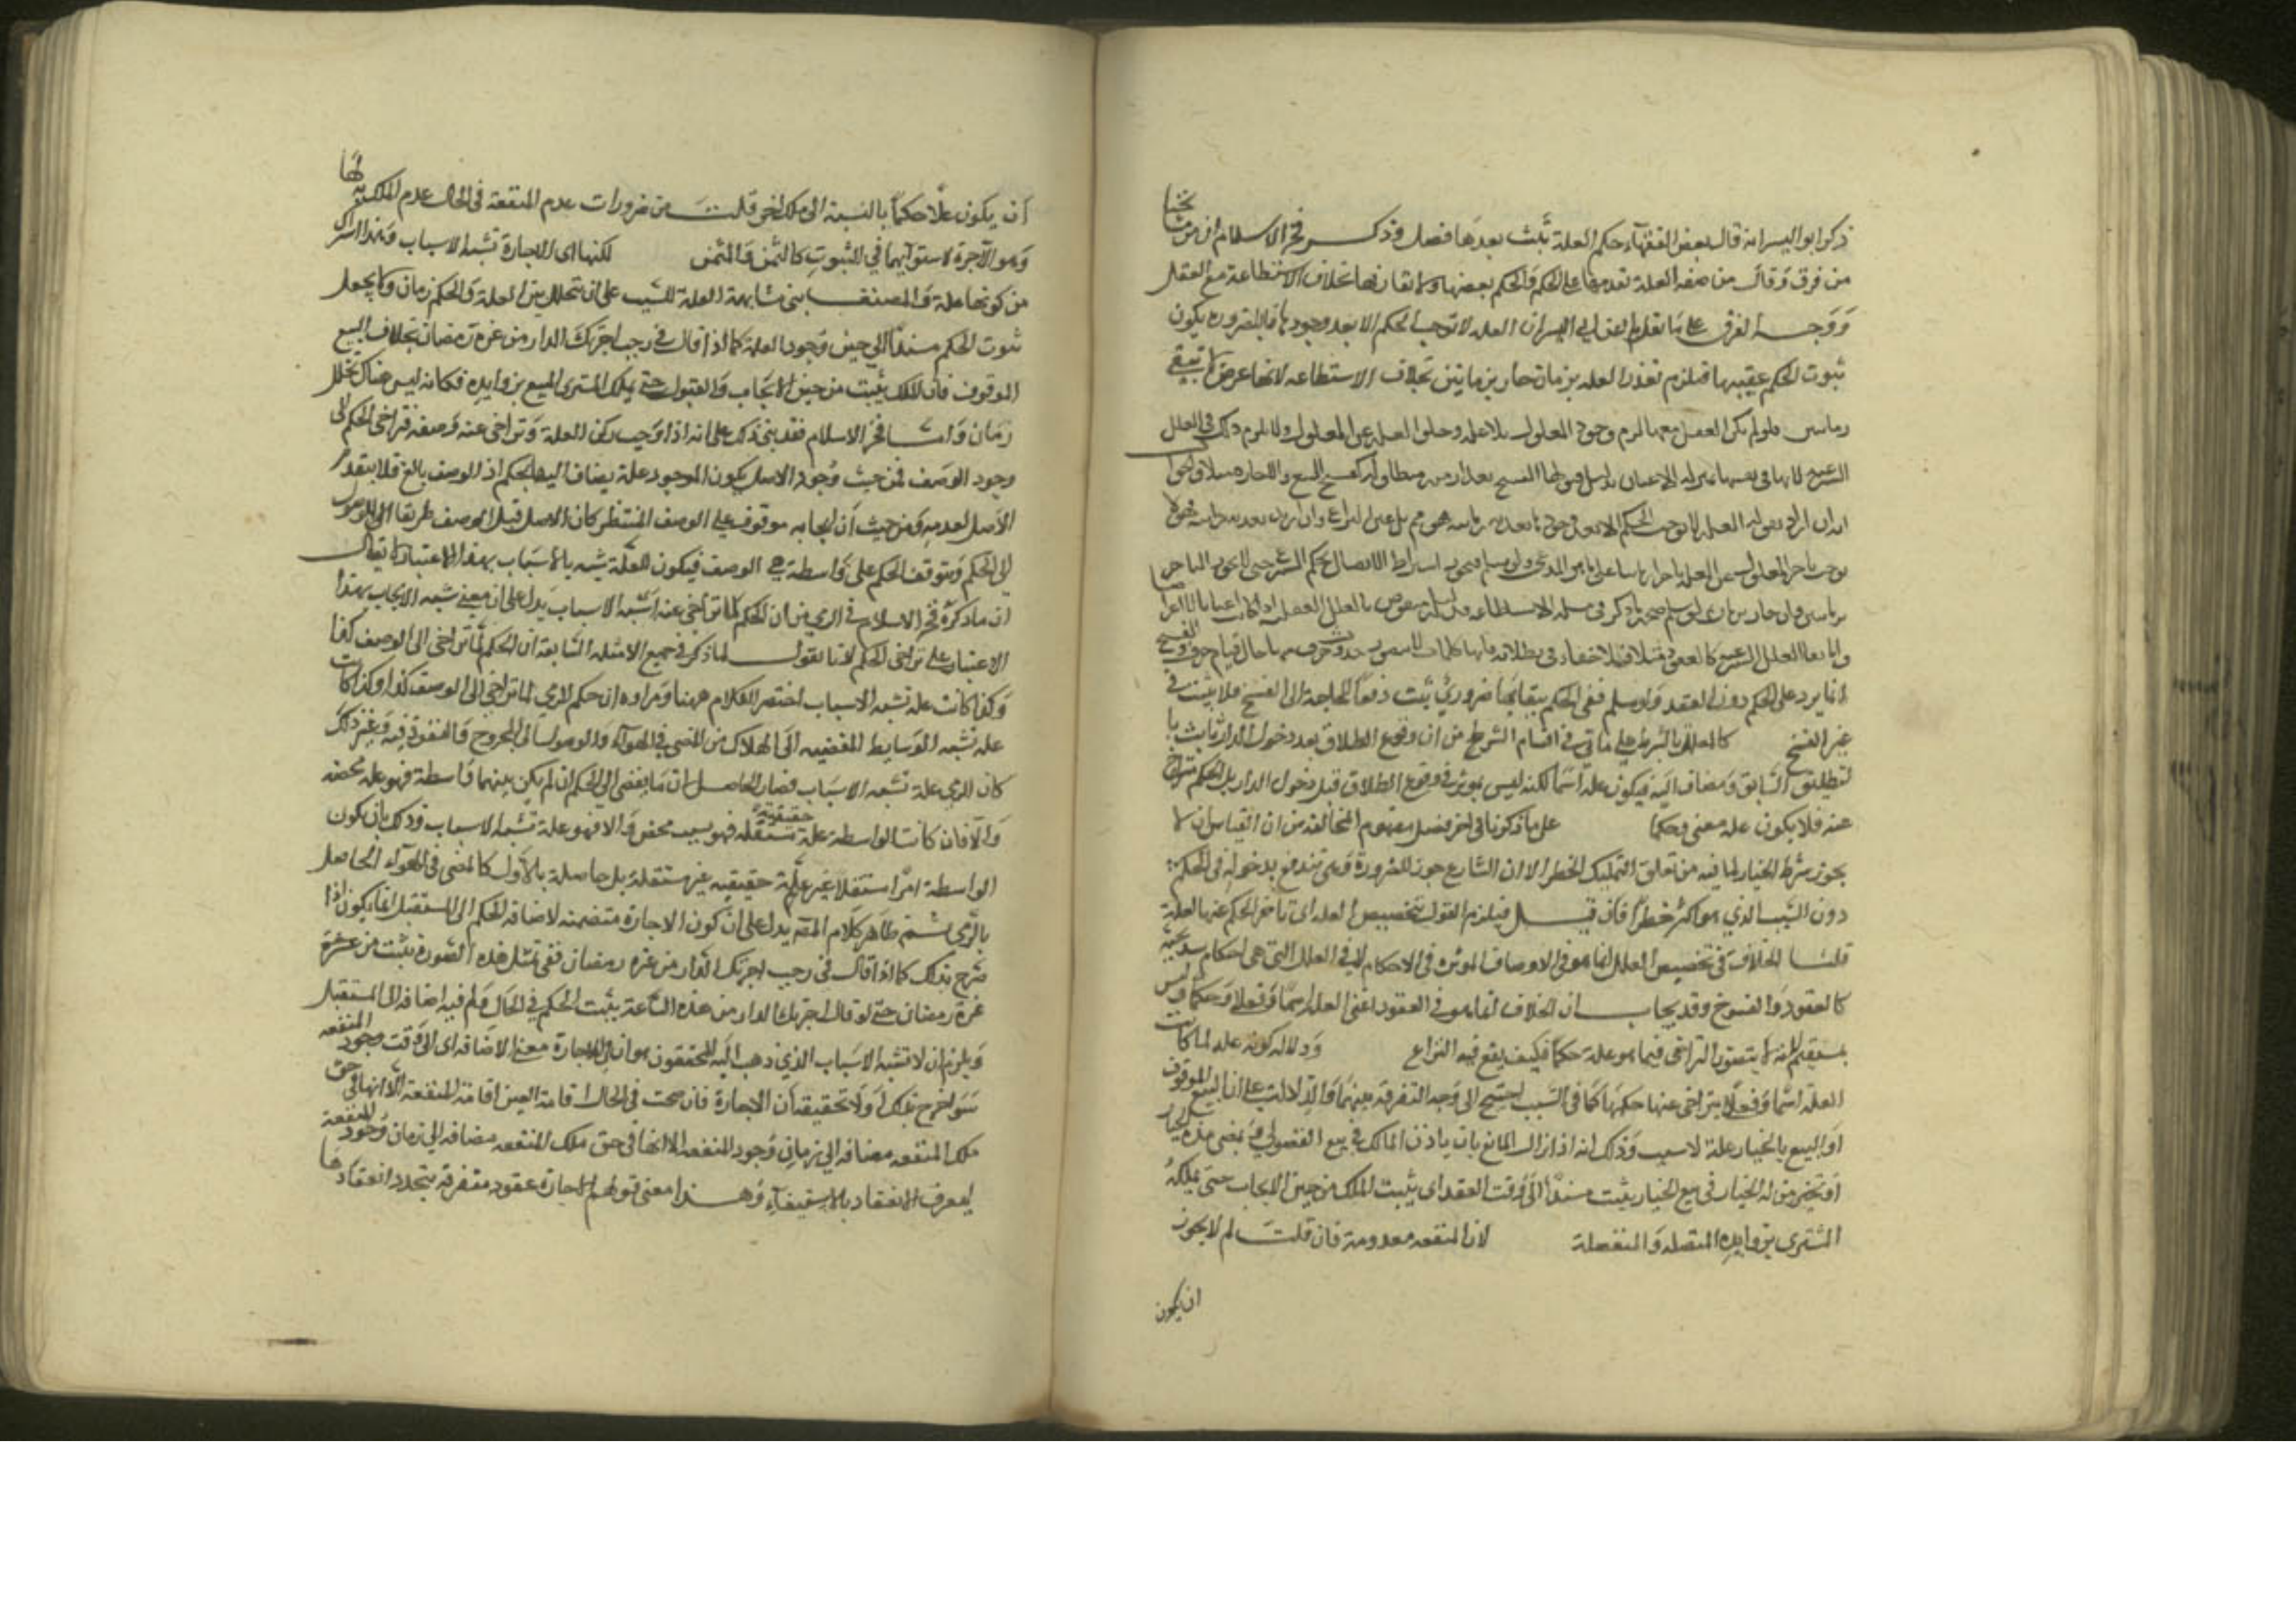 ذكر ابو اليسر انه قال بعض الفقهاء حكم العلة يثبت بعدها بلا فصل وذكر فخر الاسلام ان من مشايخنا
من فرق وقال من صفة العلة تقدمها على الحكم والحكم يعقبها ولا يقارنها بخلاف الاستطاعة مع الفعل
ووجه الفرق على ما نقل عن ابي اليسر ان العلة لا توجب الحكم الا بعد وجودها فبالضرورة يكون
ثبوت الحكم عقيبها فيلزم تقدم العلة بزمان جاز بزمانين بخلاف الاستطاعة لانها عرض لا تبقى
زمانين فلو لم يكن الفعل معها لزم وجود المعلول بلا علة وخلو العلة عن المعلول ولا يلزم ذلك في العلل
الشرعية لانها في نفسها بمنزلة الاعيان بدليل قبولها الفسخ بعد ازمنة متطاولة كفسخ البيع والاجارة مثلا
انه ان اراد بقوله العلة لا توجب الحكم الا بعد وجودها بعدية زمانية فهو ممنوع بل عين النزاع وان اراد بعدية ذاتية فهو لا
يوجب تاخر المعلول عن العلة تاخرا زمانيا على ما هو المدعى ولو سلم فيجوز اشتراط الاتصال بحكم الشرع حتى لا يجوز التاخر
وانما بقاء العلل الشرعية كالعقود مثلا فلا خفاء في بطلانه فانها كلمات لا يتصور حدوث حرف منها حال قيام حرف
انما يرد على الحكم دون العقد ولو سلم ففي الحكم ببقائها ضروري ثبت دفعا للحاجة الى الفسخ فلا يثبت في
غير الفسخ كالمعلق بالشرط على ما ياتي في اقسام الشرط من ان وقوع الطلاق بعد دخول الدار ثابت با
لتطليق السابق ومضاف اليه فيكون علة اسما لكنه ليس بمؤثر في وقوع الطلاق قبل دخول الدار بل الحكم متراخ
عنه فلا يكون علة معنى وحكما على ما ذكرنا في اخر فصل مفهوم المخالفة من ان القياس ان لا
يجوز شرط الخيار لما فيه من تعليق التمليك بالخطر الا ان الشارع جوزه للضرورة وهي تندفع بدخوله في الحكم
دون السبب الذي هو اكثر خطرا فان قيل فيلزم القول بتخصيص العلة اي تاخر الحكم عنها لعلة
قلنا الخلاف في تخصيص العلل انما هو في الاوصاف المؤثرة في الاحكام لا في العلل التي هي احكام شرعية
كالعقود والفسوخ وقد يجاب ان الخلاف انما هو في العقود اعني العلل اسما ومعنى وحكما وليس
بمستقيم لانه لا يتصور التراخي فيما هو علة حكما فكيف يقع فيه النزاع ودلالة كونه علة لما كانت
العلة اسما ومعنى لا يتراخى عنها حكمها كما في السبب احتيج الى وجه التفرقة بينهما والدلالة على ان البيع الموقوف
او البيع بالخيار علة لا سبب وذلك انه اذا زال المانع بان ياذن المالك في بيع الفضولي او بمضي مدة الخيار
او يجيز من له الخيار في بيع الخيار يثبت مستندا الى وقت العقد اي يثبت الملك من حين الايجاب حتى يملكه
المشتري بزوايده المتصلة والمنفصلة لان المنفعة معدومة فان قلت لم لا يجوز
ان يكون
ان يكون علة حكما بالنسبة الى ملك الاجرة قلت من ضرورات عدم المنفعة في الحال عدم الملك بدلها
وهو الاجرة لاستوايهما في الثبوت كالثمن والمثمن لكنها اي الاجارة تشبه الاسباب وهذا استدراك
من كونها علة والمصنف بنى مشابهة العلة للسبب على ان يتخلل بين العلة والحكم زمان ولا يجعل
ثبوت الحكم مستندا الى حين وجود العلة كما اذا قال في رجب اجرتك الدار من غرة رمضان بخلاف البيع
الموقوف فان الملك يثبت من حين الايجاب والقبول حتى يملك المشتري المبيع بزوايده فكانه ليس هناك تخلل
زمان واما فخر الاسلام فقد بنى ذلك على انه اذا وجد ركن العلة وتراخى عنه وصفه فتراخى الحكم الى
وجود الوصف فمن حيث وجود الاصل يكون الموجود علة يضاف اليها الحكم اذ الوصف تابع فلا ينعدم
الاصل لعدمه ومن حيث ان ايجابه موقوف على الوصف المنتظر كان الاصل قبل الوصف طريقا الى الوصول
الى الحكم ويتوقف الحكم على واسطة هي الوصف فيكون للعلة شبه بالاسباب بهذا الاعتبار لا يقال
ان ما ذكره فخر الاسلام في الرمي من ان الحكم لما تراخى عنه اشبه الاسباب يدل على ان معنى شبه الاسباب بهذا
الاعتبار على تراخي الحكم لانا نقول لما ذكر في جميع الامثلة السابقة ان الحكم لما تراخى الى الوصف كذا
وكذا كانت علة تشبه الاسباب اختصر الكلام ههنا ومراده ان حكم الرمي لما تراخى الى الوصف كذا وكذا كانت
علة تشبه الوسايط المفضية الى الهلاك من المضي في الهواء والوصول الى المجروح والنفوذ فيه وغير ذلك
كان الرمي علة تشبه الاسباب فصار الحاصل ان ما يفضي الى الحكم ان لم يكن بينهما واسطة فهو علة محضة
والا فان كانت الواسطة علة حقيقية مستقلة فهو سبب محض والا فهو علة تشبه الاسباب وذلك بان يكون
الواسطة امرا مستقلا غير علة حقيقية غير مستقلة بل حاصلة بالاول كالمضي في الهواء الحاصل
بالرمي ثم ظاهر كلام المص يدل على ان كون الاجارة متضمنة لاضافة الحكم الى المستقبل انما يكون اذا
صرح بذلك كما اذا قال في رجب اجرتك الدار من غرة رمضان ففي مثل هذه الصورة يثبت من غرة
غرة رمضان حتى لو قال اجرتك الدار من هذه الساعة يثبت الحكم في الحال ولم فيه اضافة الى المستقبل
ويلزم ان لا تشبه الاسباب الذي ذهب اليه المحققون هو ان في الاجارة معنى الاضافة اي الى وقت وجود المنفعة
سواء صرح بذلك او لا تحقيقه ان الاجارة فان صحت في الحال اقامة العين اقامة المنفعة الا انها في حق
ملك المنفعة مضافة الى زمان وجود المنفعة الا انها في حق ملك المنفعة مضافة الى زمان وجود المنفعة
ليعرف الانعقاد بالاستيفاء وهذا معنى قولهم الاجارة عقود متفرقة يتجدد انعقادها